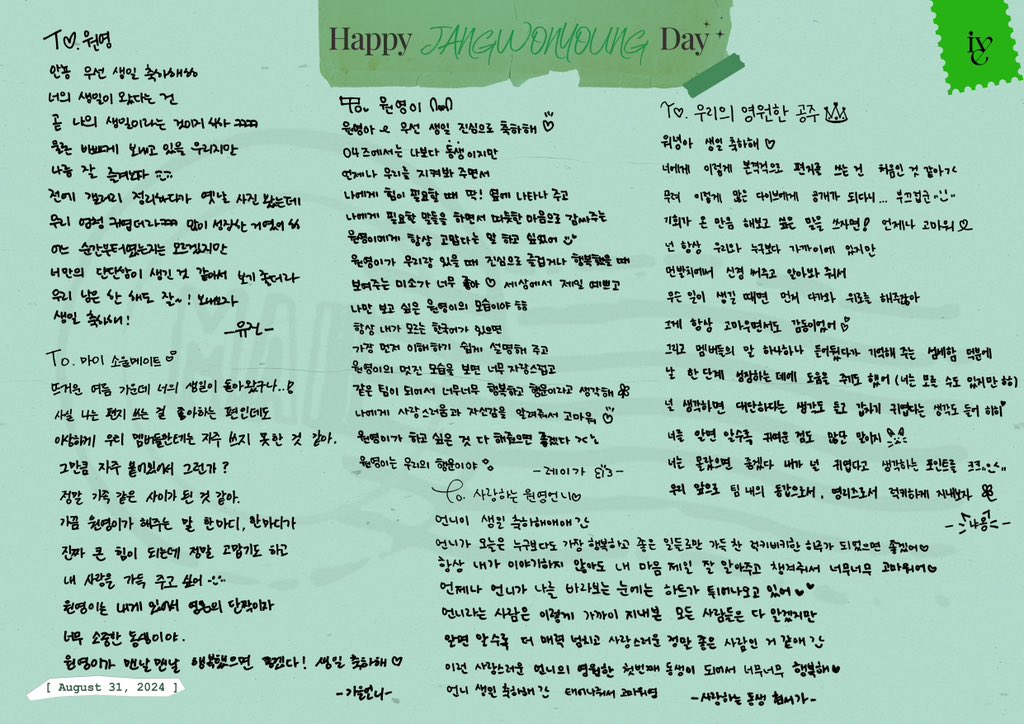 Happy JANGWONYOUNG Day
ive
To. 원영
안뇽 우선 생일 축하해ㅎㅎ
너의 생일이 왔다는 건
곧 나의 생일이라는 것이지 ㅋㅋㅋㅋ
일로 바쁘게 보내고 있을 우리지만
나름 잘 즐겨보자
전에 갤러리 정리하다가 옛날 사진 봤는데
우리 엄청 귀엽더라ㅋㅋㅋ 많이 성장한 거였어
어느 순간부터였는지는 모르겠지만
너만의 단단함이 생긴 것 같아서 보기 좋더라
우리 남은 한 해도 잘~! 보내보자
생일 축하해!
-유진-
To. 마이 소울메이트
뜨거운 여름 가운데 너의 생일이 돌아왔구나..!
사실 나는 편지 쓰는 걸 좋아하는 편인데도
이상하게 우리 멤버들한테는 자주 쓰지 못한 것 같아.
그만큼 자주 붙어있어서 그런가?
정말 가족 같은 사이가 된 것 같아.
가끔 원영이가 해주는 말 한마디, 한마디가
진짜 큰 힘이 되는데 정말 고맙기도 하고
내 사랑을 가득 주고 싶어
원영이는 내게 있어서 영혼의 단짝이자
너무 소중한 동생이야.
원영이가 맨날맨날 행복했으면 좋겠다! 생일 축하해 ♡
-가을언니-
[ August 31, 2024 ]
To. 원영이
원영아 우선 생일 진심으로 축하해 ♡
04즈에서는 나보다 동생이지만
언제나 우리를 지켜봐 주면서
나에게 힘이 필요할 때 딱! 옆에 나타나 주고
나에게 필요한 말들을 하면서 따뜻한 마음으로 감싸주는
원영이에게 항상 고맙다는 말 하고 싶었어
원영이가 우리랑 있을 때 진심으로 즐겁거나 행복했을 때
보여주는 미소가 너무 좋아 ♡ 세상에서 제일 예쁘고
나만 보고 싶은 원영이의 모습이야 ㅎㅎ
항상 내가 모르는 한국어가 있으면
가장 먼저 이해하기 쉽게 설명해 주고
원영이의 멋진 모습을 보면 너무 자랑스럽고
같은 팀이 되어서 너무너무 행복하고 행운이라고 생각해
나에게 사랑스러움과 자신감을 알려줘서 고마워 ♡
원영이가 하고 싶은 것 다 해줬으면 좋겠다
원영이는 우리의 행운이야
-레이가-
To. 사랑하는 원영언니♡
언니이 생일 축하해애애
언니가 오늘은 누구보다도 가장 행복하고 좋은 일들로만 가득 찬 럭키비키한 하루가 되었으면 좋겠어♡
항상 내가 이야기하지 않아도 내 마음 제일 잘 알아주고 챙겨줘서 너무너무 고마워어♡
언제나 언니가 나를 바라보는 눈에는 하트가 튀어나오고 있어♥♥
언니라는 사람은 이렇게 가까이 지내본 모든 사람들은 다 알겠지만
알면 알수록 더 매력 넘치고 사랑스러운 정말 좋은 사람인 거 같애
이런 사랑스러운 언니의 영원한 첫번째 동생이 되어서 너무너무 행복해♥
언니 생일 축하해 태어나줘서 고마워영
-사랑하는 동생 현서가-
To. 우리의 영원한 공주
워녕아 생일 축하해 ♡
너에게 이렇게 본격적으로 편지를 쓰는 건 처음인 것 같아
무려 이렇게 많은 다이브에게 공개가 되다니... 부끄럽군
기회가 온 만큼 해보고 싶은 말을 쓰자면! 언제나 고마워
넌 항상 우리와 누구보다 가까이에 있지만
먼발치에서 신경 써주고 알아봐 줘서
무슨 일이 생길 때면 먼저 다가와 위로를 해주잖아
그게 항상 고마우면서도 감동이었어
그리고 멤버들의 말 하나하나 들어뒀다가 기억해 주는 섬세함 덕분에
날 한 단계 성장하는 데에 도움을 주기도 했어 (너는 모를 수도 있지만 ㅎㅎ)
널 생각하면 대단하다는 생각도 들고 갑자기 귀엽다는 생각도 들어 히히
너를 알면 알수록 귀여운 점도 많단 말이지
너는 몰랐으면 좋겠다 내가 널 귀엽다고 생각하는 포인트를 크크
우리 앞으로 팀 내의 동갑으로서, 영리즈로서 럭키하게 지내보자
-리즈-